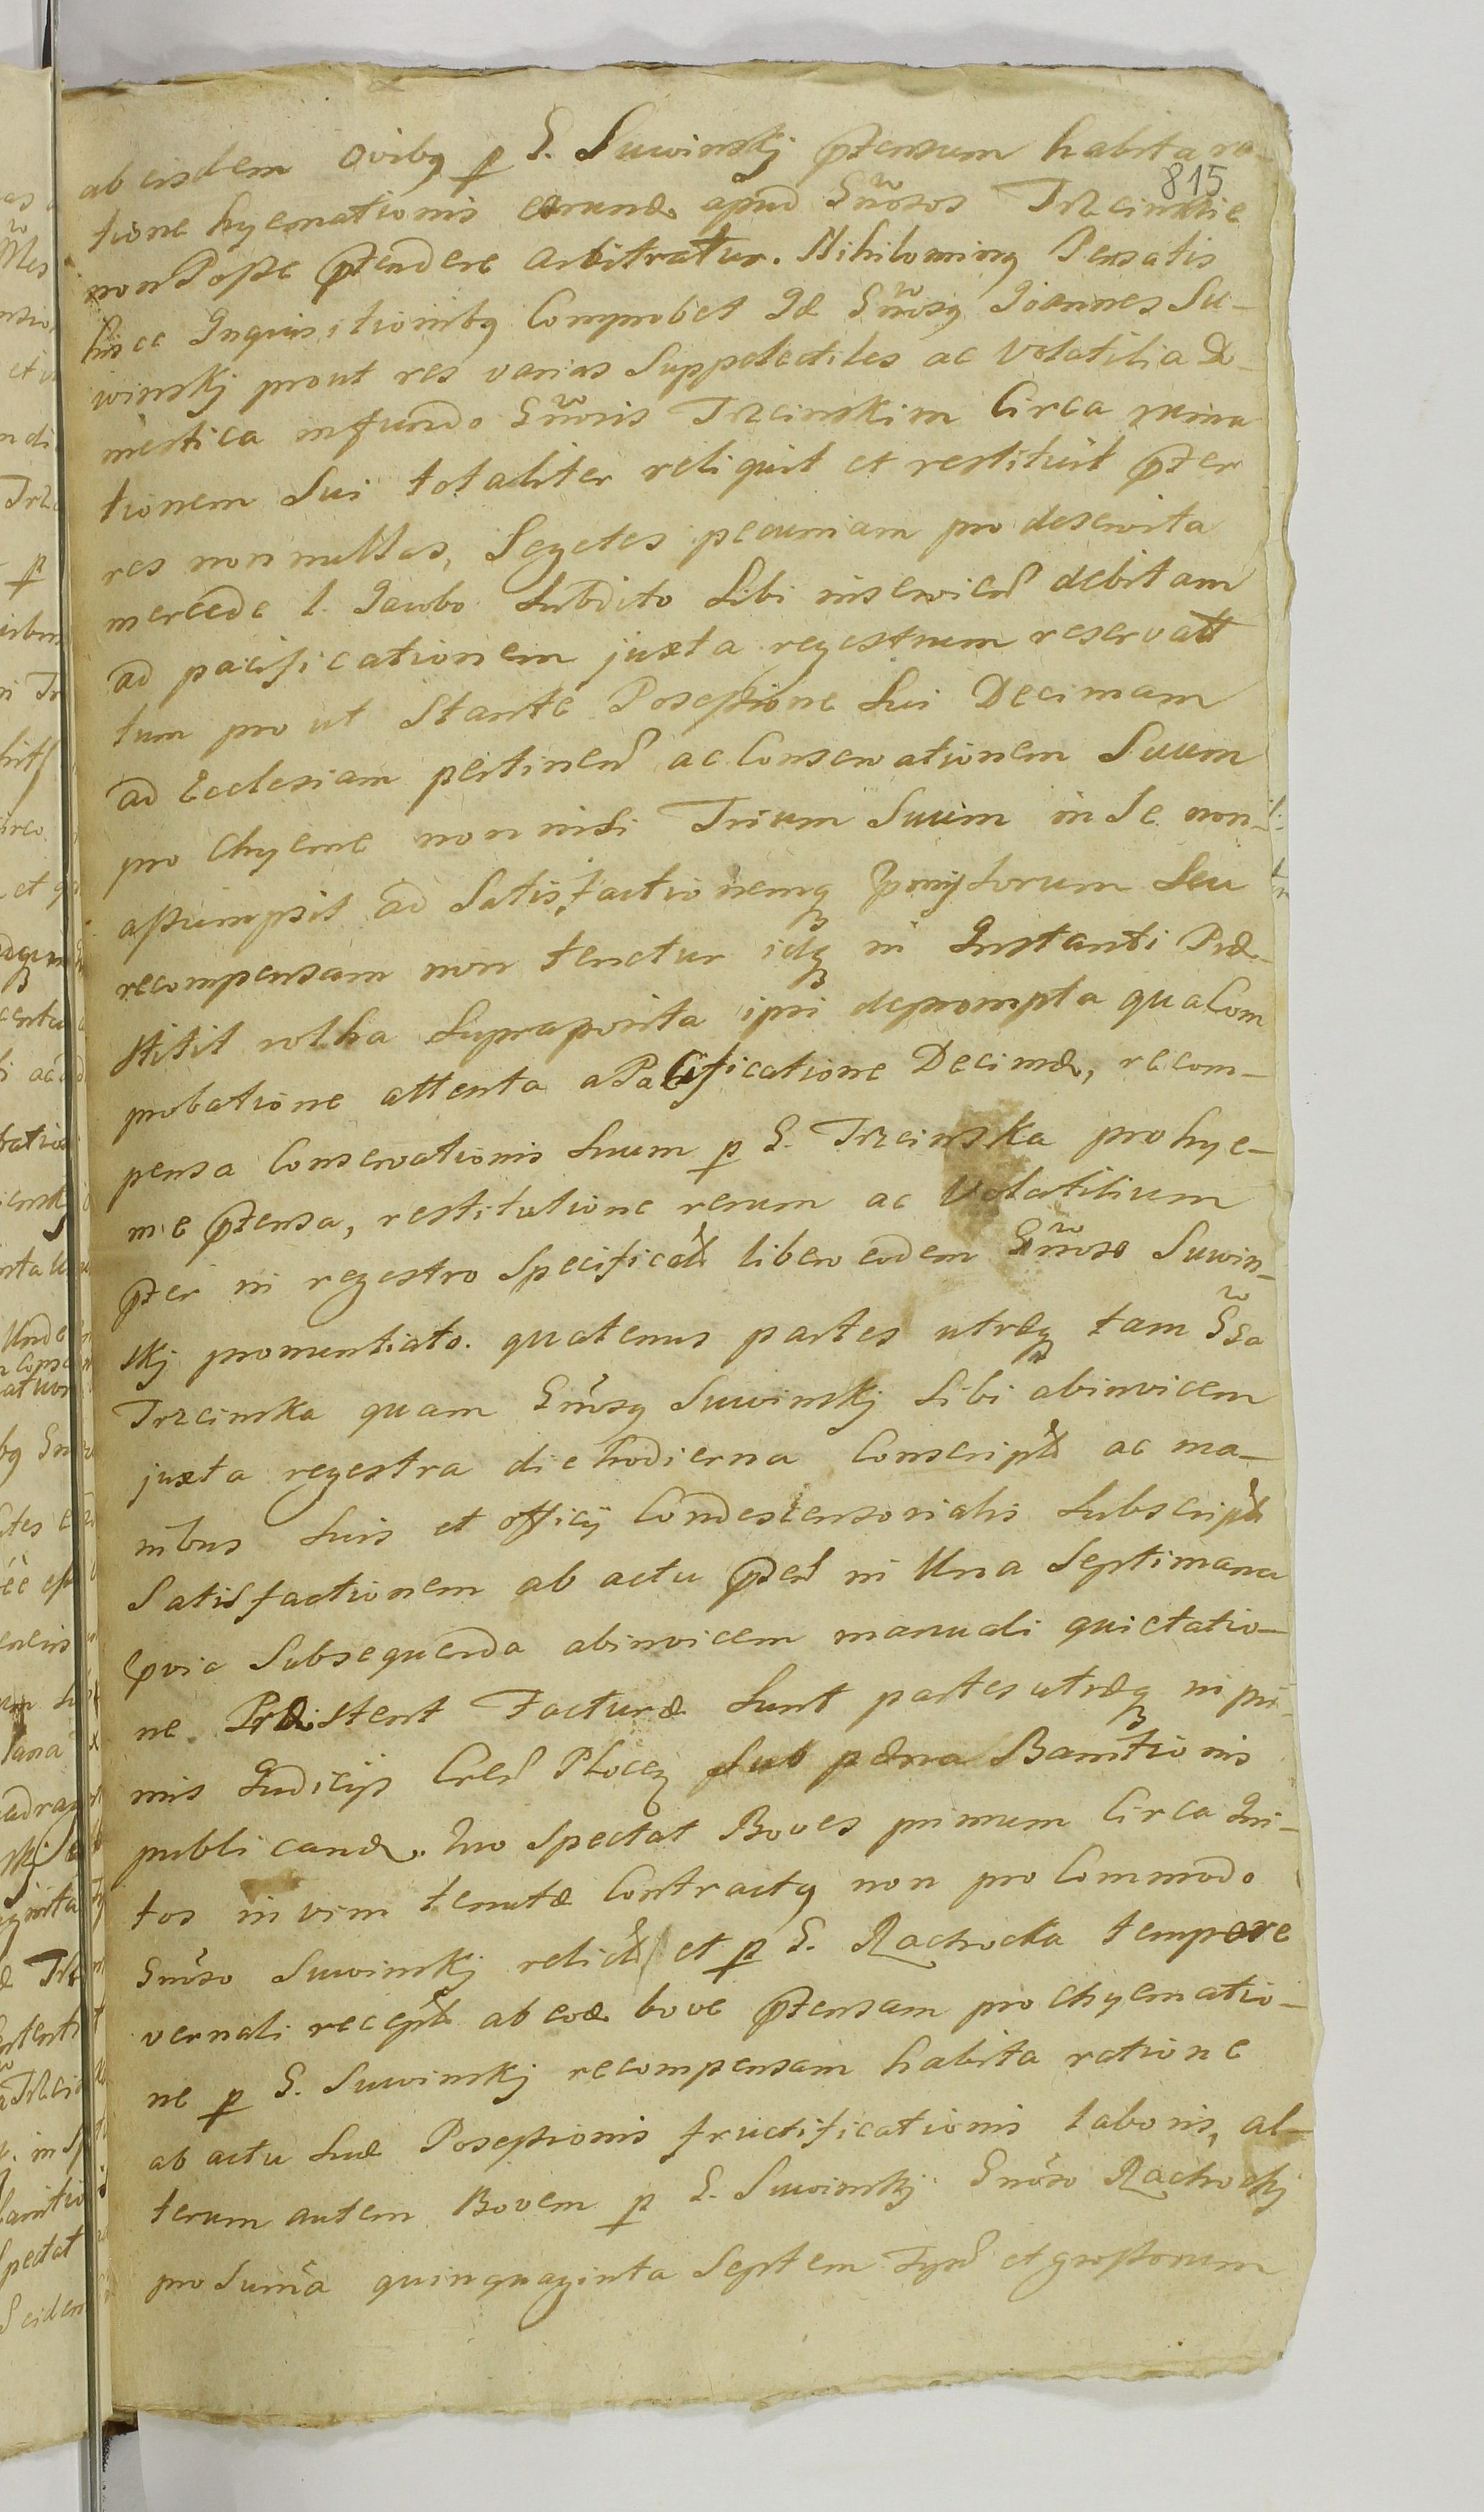 815
ab eisdem Ovibq p G. Suwinskj prtensum habita ra-
tione hyemationis earund. apud Gnrosos Trzcinskie
non Posse prtendere arbitratur. Nihilominq Pensatis
hisce Inquisitionibq Comprobet Id Gnrosq Joannes Su-
winskj prout res varias Suppelectiles ac Volatilia Do-
mestica in fundo Gnroris Trzcinskim Circa ruma
tionem Sui totaliter reliquit et restituit prter
res nonnullas, Segetes pecuniam pro deservita
mercede l. Jacobo Subdito Sibi inserviend debitam
ad pacificationem juxta regestrum reservatt
tum pro ut Stante Posessione Sui Decimam
ad Ecclesiam pertinen ac Conservationem Suum
pro Chyeme non nisi Trium Suum in Se non-
assumpsit ad Satisfactionemq prmissorum Seu
recompensam non tenetur idq in Instanti Præ-
stitit rotha Supraposita ipsi deprompta qua Com
probatione attenta a Pacificatione Decimæ, recom-
pensa Conservationis Suum p G. Trzcinska pro hye-
me prtensa, restitutione rerum ac Volatilium
prter in regestro Specificatt libero eodem Gnroso Suwin-
skj pronuntiato. quatenus partes utræq tam Gsa
Trzcinska quam Gnrosq Suwinskj Sibi abinvicem
juxta regestra die hodierna Conscriptt ac ma-
nibus Suis et officij Condescensorialis Subscriptt
Satisfactionem ab actu prsen in Una Septimana
prvie Subsequenda abinvicem manuali quietatio-
ne. Præstent Facturæ Sunt partes utræq in pri-
mis Judicijs Cren Plocen Sub pæna Banitionis
publicandæ. Quo Spectat Boves primum Circa Qui-
tos in vim tenutæ Contractq non pro Commodo
Gnroso Suwinskj relictt et p G. Rachocka tempore
vernali receptt ab eod bove prtensam pro chyematio-
ne p G. Suwinskj recompensam habita ratione
ab actu Suæ Posessionis fructificationis laboris, al-
terum autem Bovem p G. Suwinskj Gnroso Rachockj
pro Summa quinquaginta Septem Tynf et grossorum